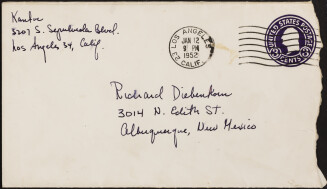 Kantor
3207 S. Sepulveda Blvd.
Los Angeles 34, Calif.
LOS ANGELES
JAN 12
PM
1952
CALIF.
UNITED STATES POSTAGE
3 CENTS 3
Richard Diebenkorn
3014 N. Edith St.
Albuquerque, New Mexico